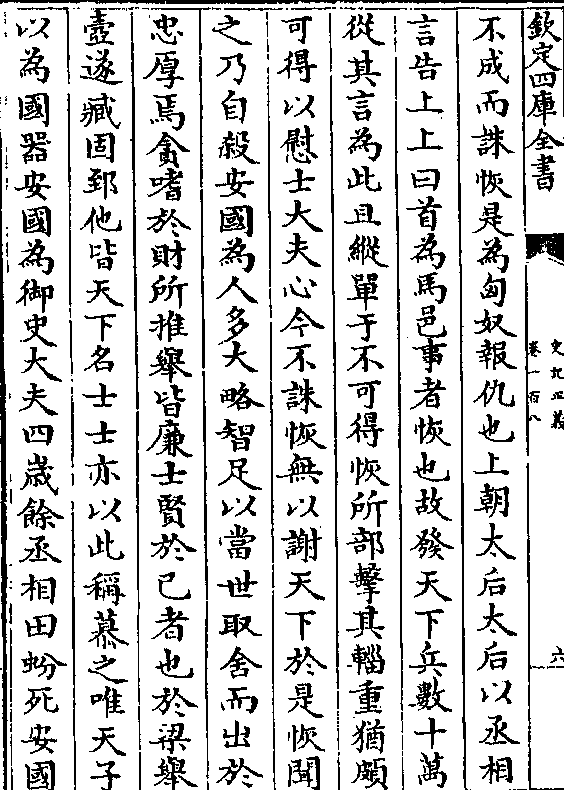 欽定四庫全書
史記正義
卷一百八
六
不成而誅恢是為匈奴報仇也上朝太后太后以丞相
言告上上曰首為馬邑事者恢也故發天下兵數十萬
從其言為此且縱單于不可得恢所部擊其輜重猶頗
可得以慰士大夫心今不誅恢無以謝天下於是恢聞
之乃自殺安國為人多大略智足以當世取舍而出於
忠厚焉貪嗜於財所推舉皆廉士賢於己者也於梁舉
壺遂臧固郅他皆天下名士士亦以此稱慕之唯天子
以為國器安國為御史大夫四歲餘丞相田蚡死安國